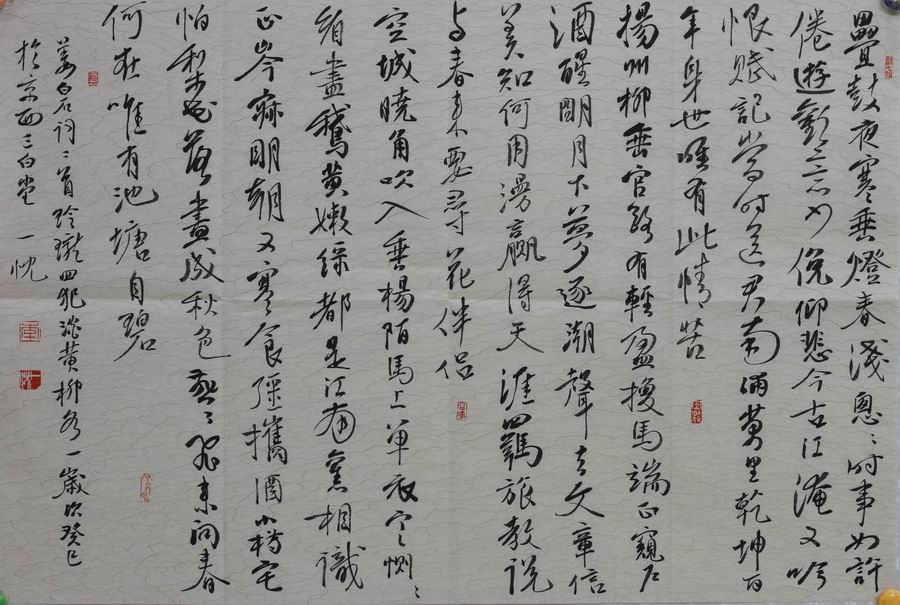 疊鼓夜寒垂燈春淺恩〻時事如許
倦遊歡意少俛仰悲今古江淹又吟
恨賦記當時送君南浦萬里乾坤百
年身世唯有此情苦
揚州柳垂官路有輕盈換馬端正窺戶
酒醒明月下夢逐潮聲去文章信
美知何用漫贏得天涯羈旅教說
与春來要尋花伴侶
空城曉角吹入垂楊陌馬上單衣寒惻〻
看盡鵝黃嫩綠都是江南舊相識
正岑寂明朝又寒食彊攜酒小橋宅
怕梨花落盡成秋色燕〻飛來問春
何在唯有池塘自碧
姜白石詞二首玲瓏四犯淡黃柳各一歲次癸巳
於京西三白堂一忱